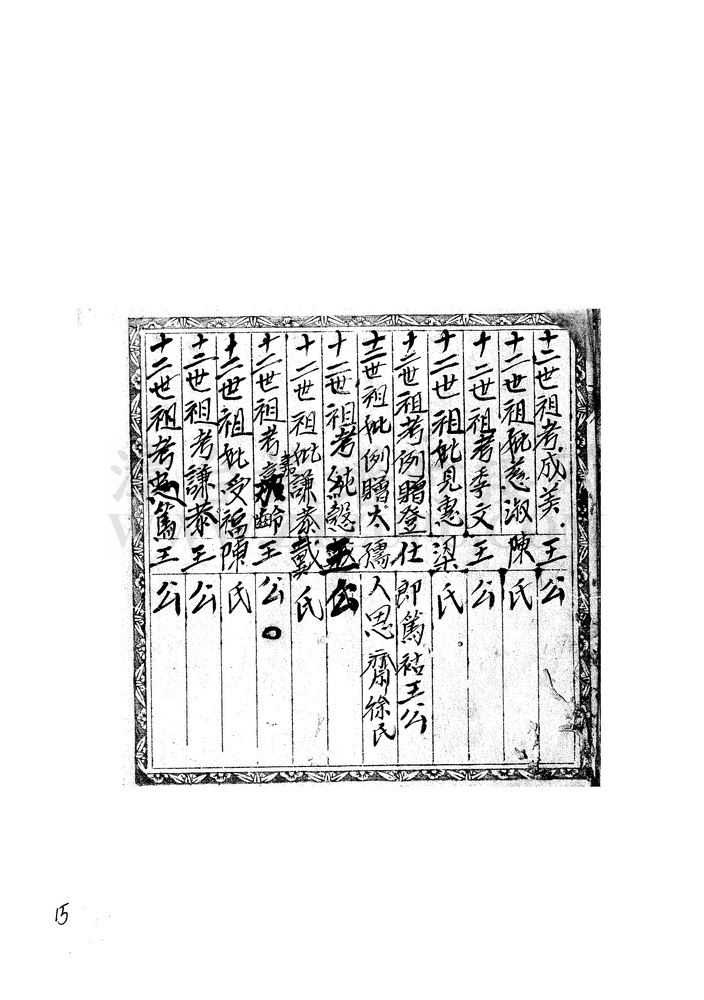 十二世祖考成美王公
十二世祖妣慈淑陳氏
十二世祖考季文王公
十二世祖妣見惠梁氏
十二世祖考例贈登仕郎篤祜王公
十二世祖妣例贈太孺人思齋徐氏
十二世祖考純慤王公
十二世祖妣謙恭戴氏
十二世祖考嘉齡王公
十二世祖妣受福陳氏
十二世祖考謙恭王公
十二世祖考忠篤王公
15